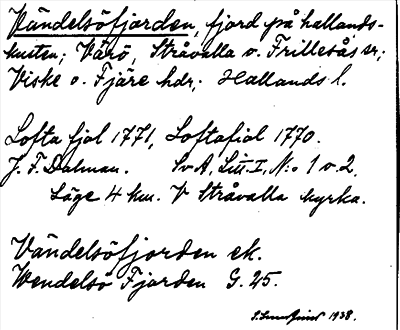 Vändelsöfjorden, fjord på hallands-
kusten; Värö, Stråvalla o. Frillesås sr;
Viske o. Fjäre hdr; Hallands l.
Lofta fjol 1771, Loftafiol 1770.
J. F. Dalman. SvA, Litt. I, N:o 1 o 2.
Läge 4 km. V Stråvalla kyrka.
Vändelsöfjorden ek.
Wendelsö Fjorden G. 25.
1938.